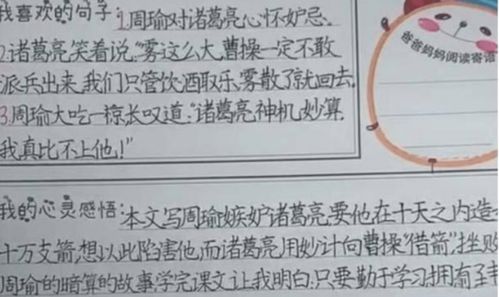 我喜欢的句子：1.周瑜对诸葛亮心怀妒忌。
2.诸葛亮笑着说，“雾这么大，曹操一定不敢
派兵出来，我们只管饮酒取乐，雾散了就回去。
3.周瑜大吃一惊长叹道：“诸葛亮神机妙算，
我真比不上他！”
爸爸妈妈阅读寄语
我的心灵感悟：本文写周瑜嫉妒诸葛亮，要他在十天之内造
十万支箭，想以此陷害他，而诸葛亮用妙计向曹操“借箭”，挫败
周瑜的暗算的故事，学完课文让我明白，只要勤于学习拥有